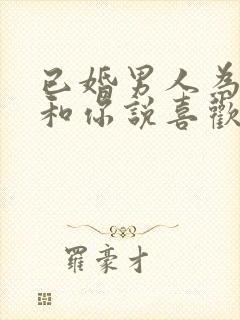 已婚男人為
和你說喜歡
羅豪才